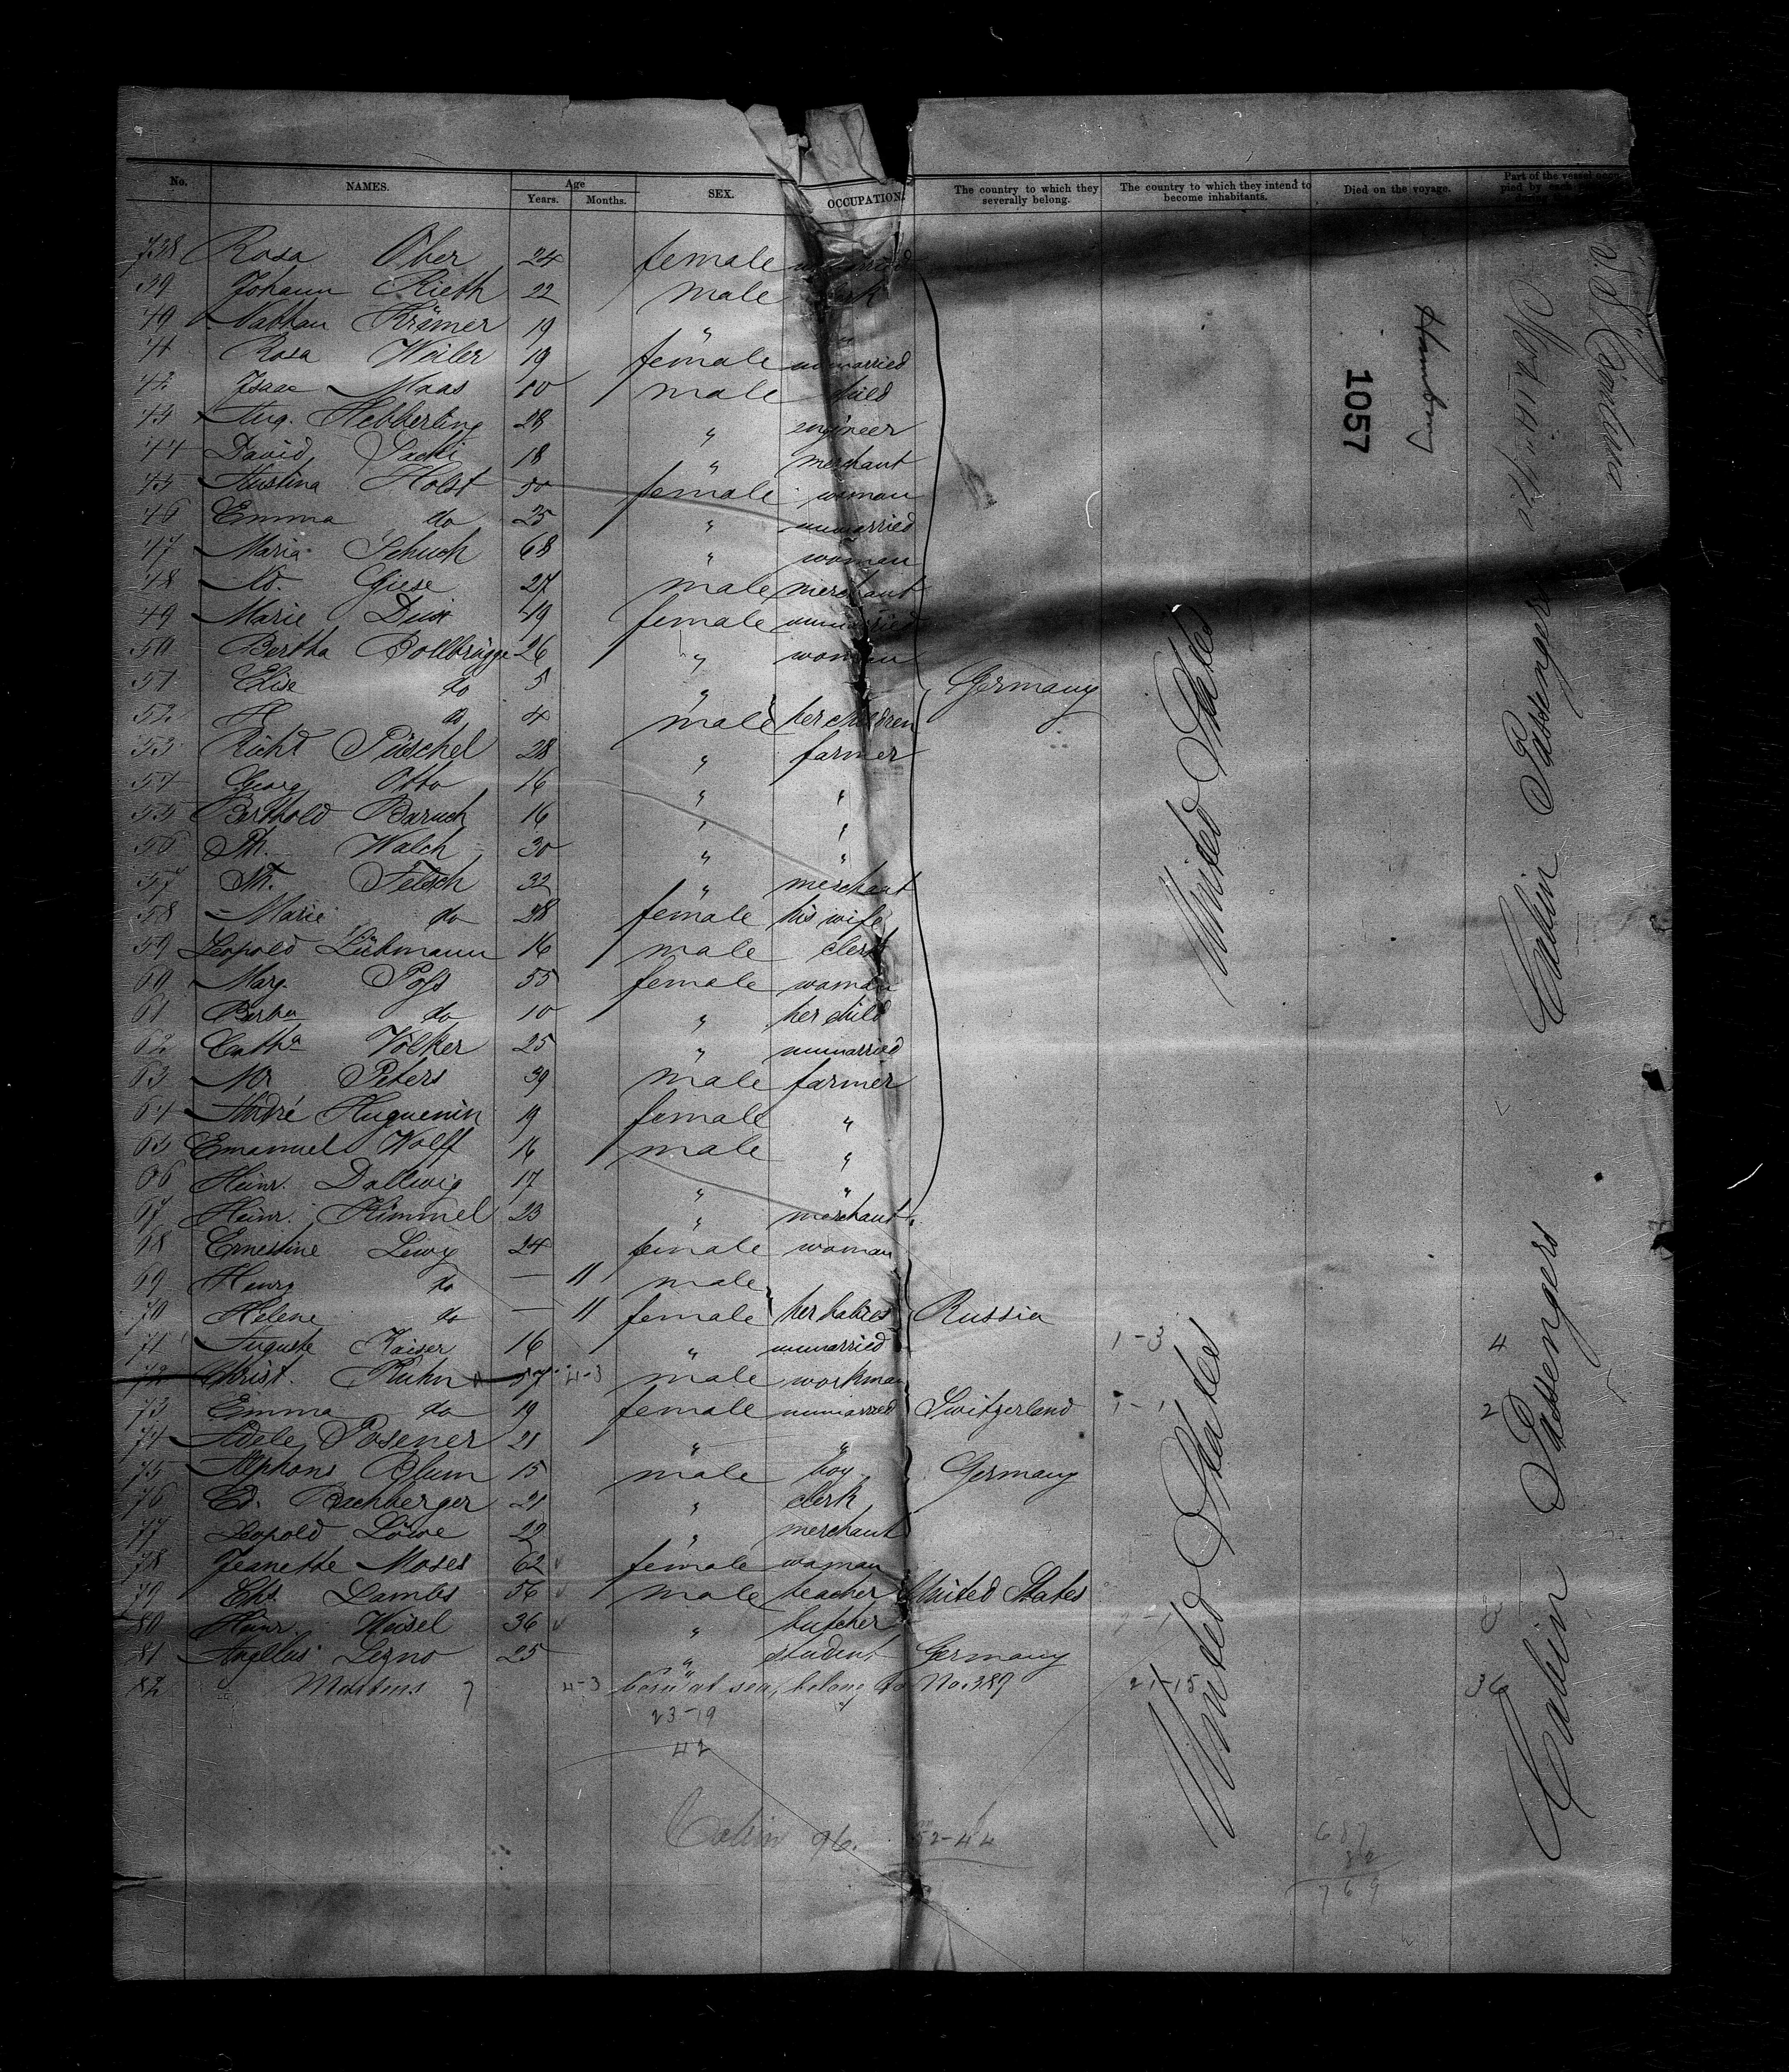 No. NAMES. Age Years. Months. SEX. OCCUPATION. The country to which they severally belong. The country to which they intend to become inhabitants. Died on the voyage. Part of the vessel occupied by each
738 Rosa Ober 24 female unmarried
39 Johann Rieth 22 male clerk
40 Nathan Krämer 19 "
41 Rosa Weiler 19 female unmarried
42 Isaac Maas 10 male child
43 Aug. Hebberling 28 " engineer
44 David Sachi 18 " merchant
45 Kustina Holst 50 female woman
46 Emma do 25 " unmarried
47 Maria Schuch 68 " woman
48 Giese 27 male merchant
49 Marie Dux 49 female unmarried
50 Bertha Bollbrügge 26 " woman
51 Elise do 5 " Germany
52 H do 4 male her children
53 Richd Püschel 28 " farmer
54 Georg Otto 16 " "
55 Berthold Baruch 16 " "
56 Ph. Walch 30 " "
57 Felsch 32 " merchant
58 Marie do 28 female his wife
59 Leopold Lühmann 16 male clerk
60 Marg. Poss 55 female woman
61 Bertha do 10 " her child
62 Cath<sup>a</sup> Völker 25 " unmarried
63 Mr Peters 39 male farmer
64 André Huguenin 19 female "
65 Emanuel Wolff 16 male "
66 Heinr. Dallwig 17 " "
67 Heinr. Kimmel 23 " merchant
68 Ernestine Lewy 24 female woman
69 Henry do — 11 male
70 Helene do — 11 female her babies Russia
71 Auguste Kaiser 16 " unmarried 1-3 4
72 Christ. Kuhn 57 4-3 male workman
73 Emma do 19 female unmarried Switzerland 1-1 2
74 Adele Posener 21 " "
75 Alphons Blum 15 male boy Germany
76 Ed. Bachberger 21 " clerk
77 Leopold Löwe 22 " merchant
78 Jeanette Moses 62 female woman
79 Chs. Lambs 56 male teacher United States
80 Heinr. Weisel 36 " butcher 2-1 3
81 Angelus Legno 25 " student Germany
82 Martens 4-3 born at sea, belong to No. 387 21-15 36
23-19
42
Cabin 96. 52-44
687
82
769
United States
United States
Hamburg
1057
Cabin Passengers
Cabin Passengers